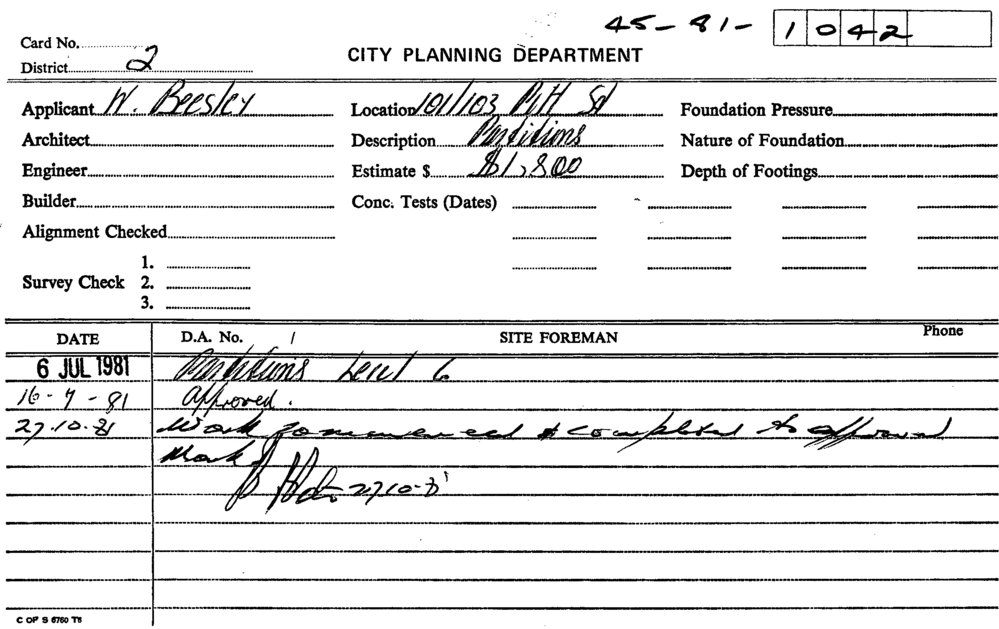 45-81- 1042
Card No.
CITY PLANNING DEPARTMENT
District 2
Applicant W. Beesley Location 101/103 Pitt St Foundation Pressure
Architect Description Partitions Nature of Foundation
Engineer Estimate $ $1,800 Depth of Footings
Builder Conc. Tests (Dates)
Alignment Checked
1.
Survey Check 2.
3.
DATE D.A. No. SITE FOREMAN Phone
6 JUL 1981 Partitions Level 6
16-7-81 Approved.
27.10.81 Work commenced & completed to approval
27-10-81
C OF S 6760 T6